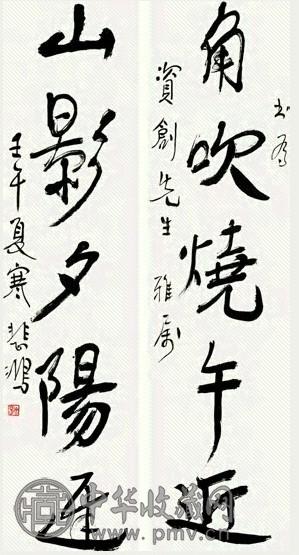 角吹燒午近
書為
資創先生 雅屬
山影夕陽遲
壬午夏寒 悲鴻
中华收藏网
www.pmv.cn